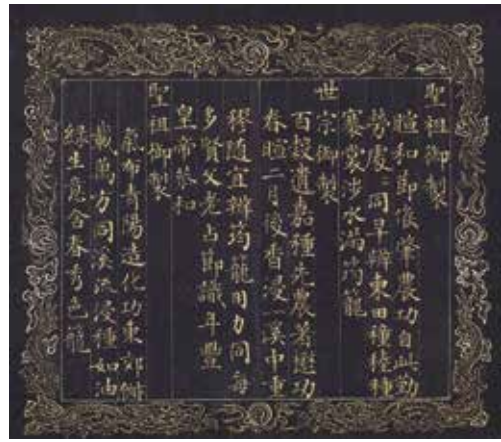 聖祖御製
暄和節候肇農功自此勤
勞處〻同早辦東田穜稑種
褰裳涉水滿筠籠
世宗御製
百穀遺嘉種先農著懋功
春暄二月後香浸一溪中重
穋隨宜辦筠籠用力同每
多賢父老占節識年豐
皇帝恭和
聖祖御製
氣布青陽造化功東郊俶
載萬方同溪流浸種如油
綠生意含春秀色籠